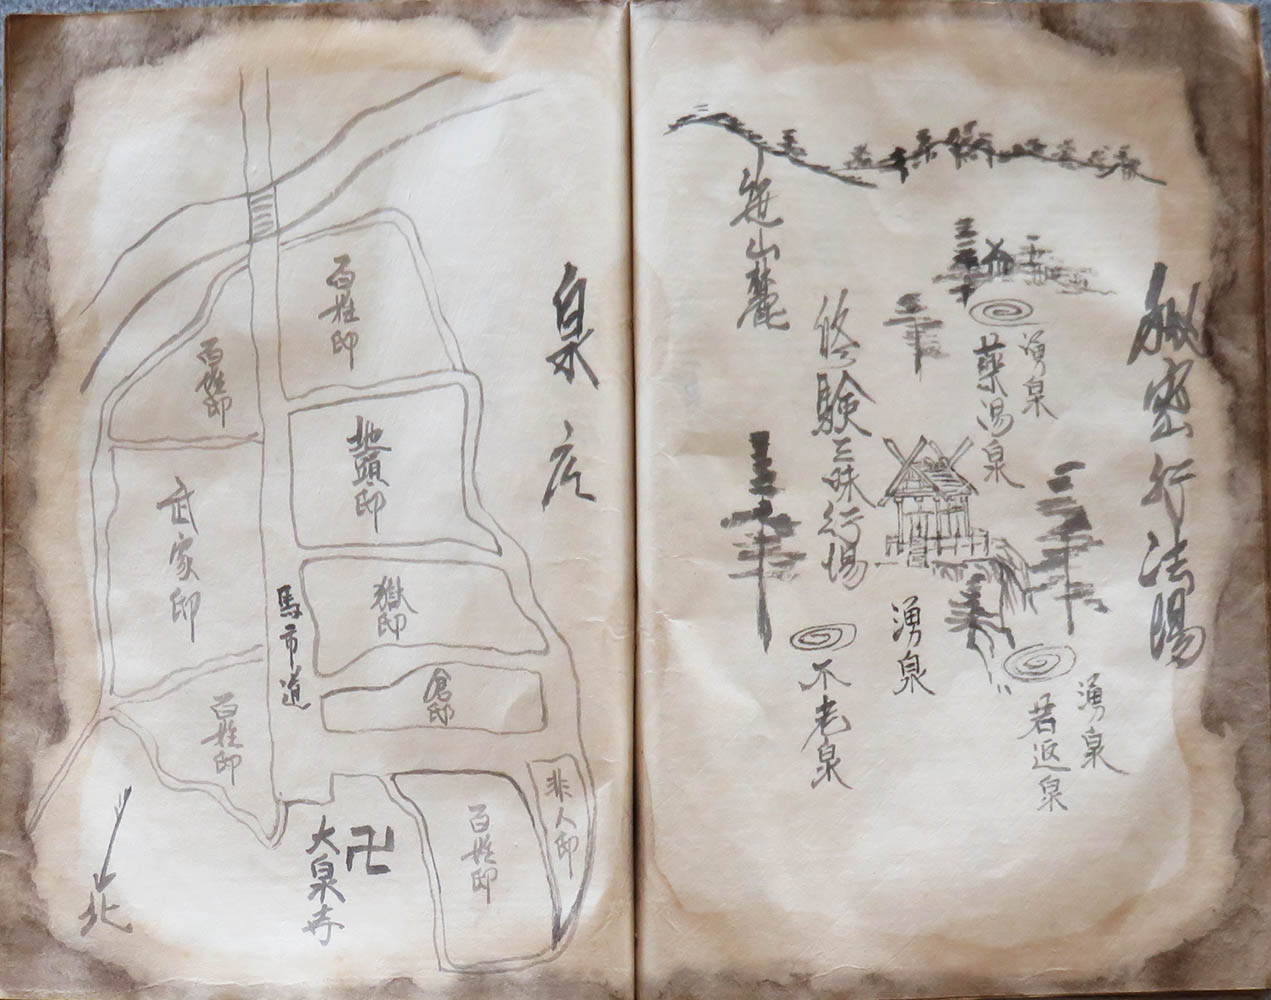 秘密行法場
湧泉
薬湯泉
湧泉
若返泉
湧泉
修験三昧行場
不老泉
山麓
泉
百姓邸
地頭邸
獄邸
倉邸
非人邸
百姓邸
馬市道
卍
大泉寺
百姓邸
武家邸
百姓邸
北